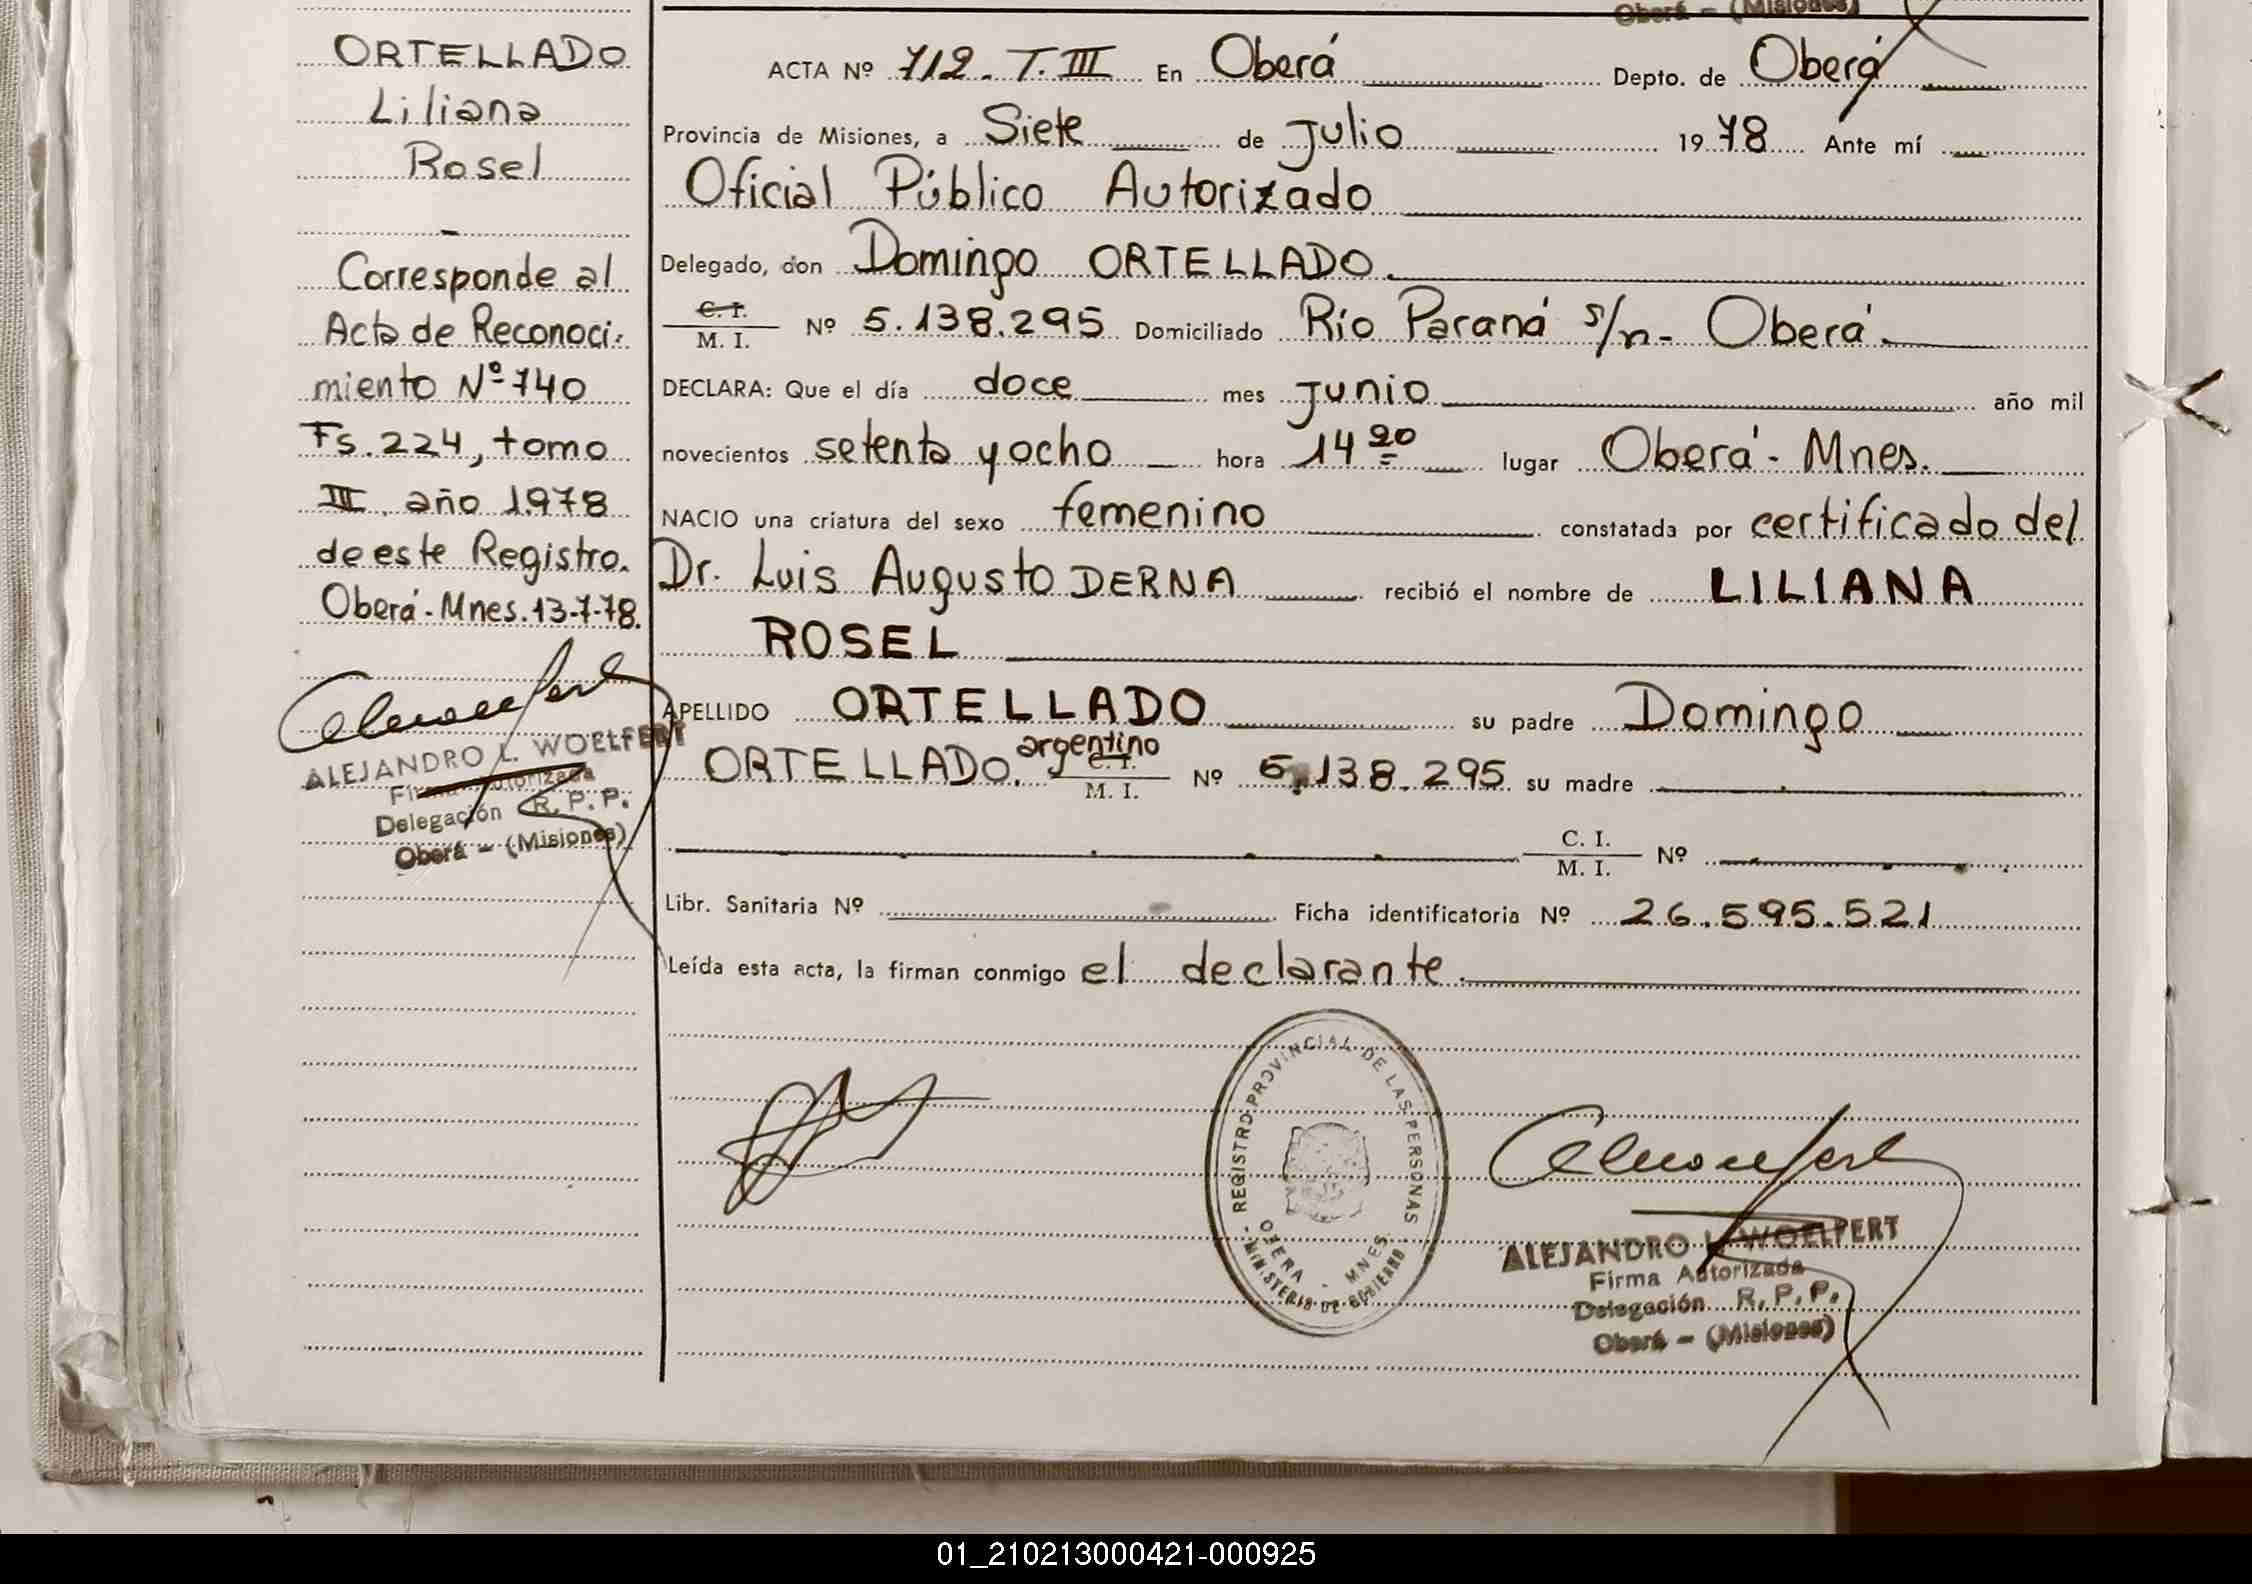 Oberá - (Misiones)
ORTELLADO
Liliana
Rosel
-
Corresponde al
Acta de Reconoci-
miento Nº 740
Fs. 224, tomo
III. año 1978
de este Registro.
Oberá - Mnes. 13-7-78.
ALEJANDRO L. WOELFERT
Firma Autorizada
Delegación R. P. P.
Oberá - (Misiones)
ACTA Nº 712 - T. III En Oberá Depto. de Oberá
Provincia de Misiones, a Siete de Julio 1978 Ante mí
Oficial Público Autorizado
Delegado, don Domingo ORTELLADO.
C. I.
M. I. Nº 5.138.295 Domiciliado Río Paraná s/n - Oberá
DECLARA: Que el día doce mes junio año mil
novecientos setenta y ocho hora 14 20 lugar Oberá - Mnes.
NACIO una criatura del sexo femenino constatada por certificado del
Dr. Luis Augusto DERNA recibió el nombre de LILIANA
ROSEL
APELLIDO ORTELLADO su padre Domingo
ORTELLADO. argentino C. I. M. I. Nº 5.138.295 su madre
C. I.
M. I. Nº
Libr. Sanitaria Nº Ficha identificatoria Nº 26.595.521
Leída esta acta, la firman conmigo el declarante.
REGISTRO PROVINCIAL DE LAS PERSONAS
OBERA - MNES.
MINISTERIO DE GOBIERNO
ALEJANDRO L. WOELFERT
Firma Autorizada
Delegación R. P. P.
Oberá - (Misiones)
01_210213000421-000925